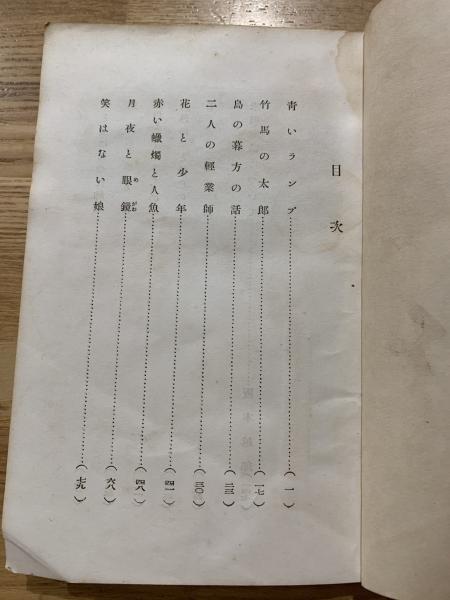 目次
青いランプ……(一)
竹馬の太郎……(一七)
島の暮方の話……(二三)
二人の輕業師……(三〇)
花と少年……(四一)
赤い蠟燭と人魚……(四八)
月夜と眼鏡……(六八)
めがね
笑はない娘……(七九)